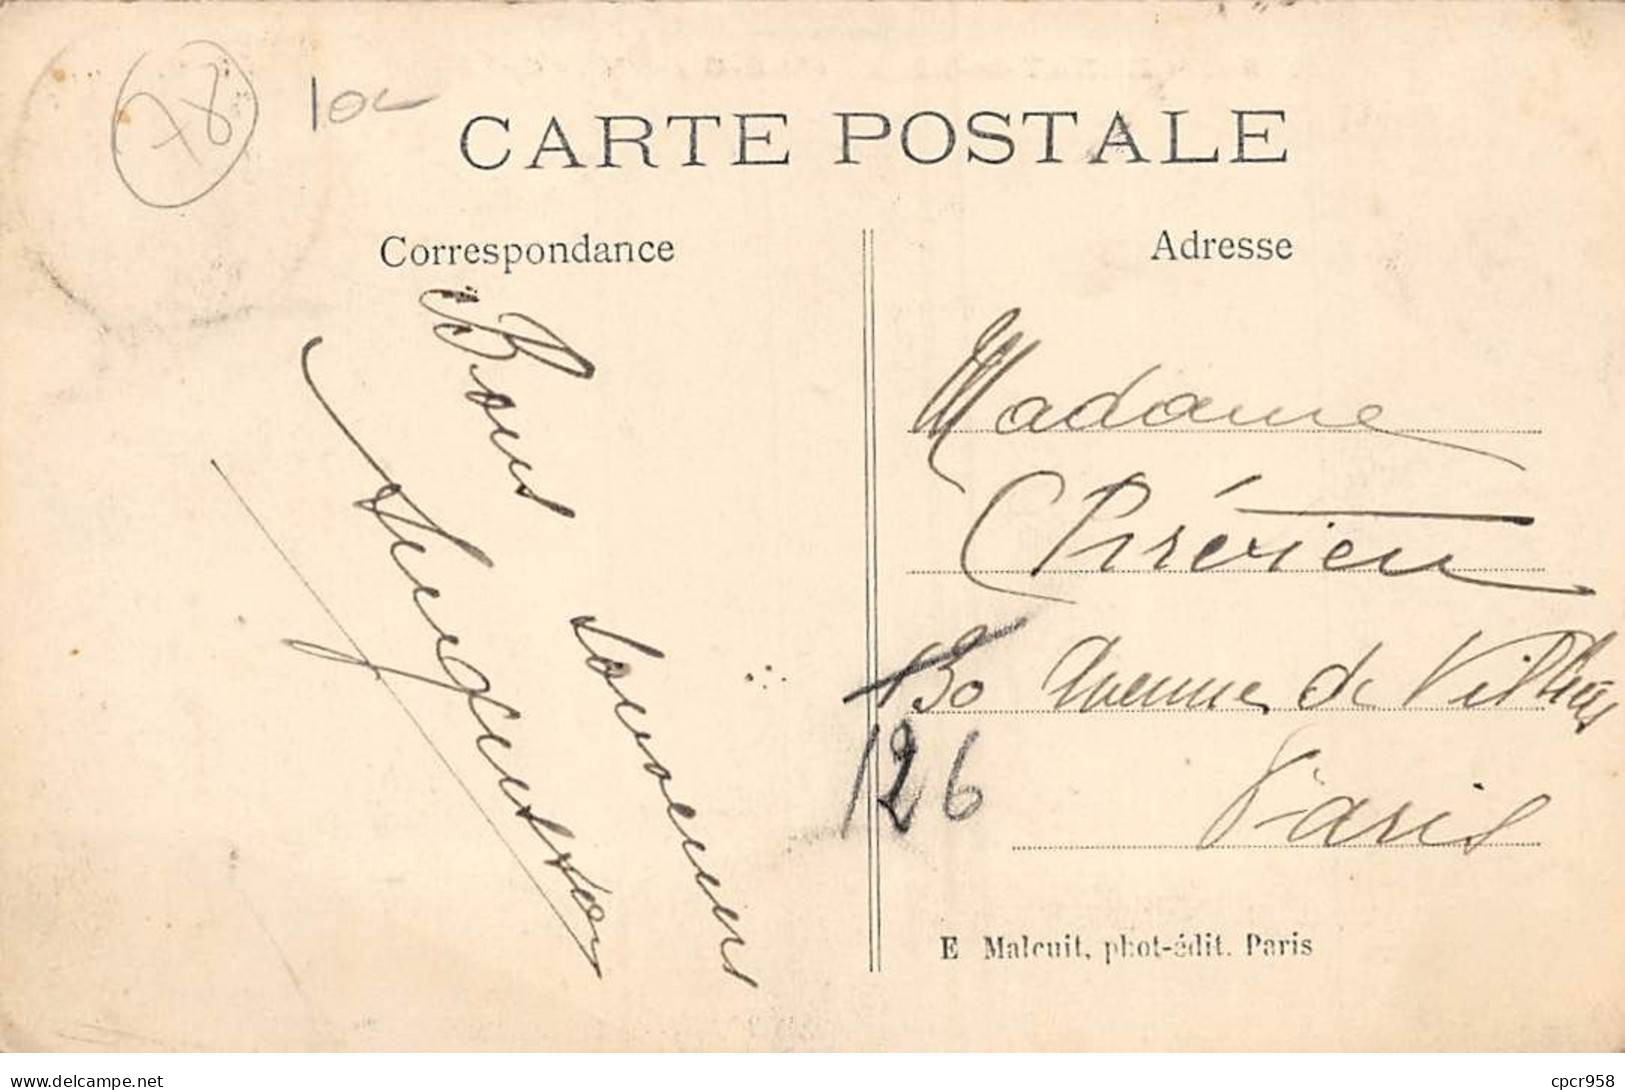 78
CARTE POSTALE
Correspondance
Adresse
Bons
souvenirs
Madame
130 Avenue de Villiers
126
Paris
E Malcuit, phot-édit. Paris
delcampe.net
cpcr958